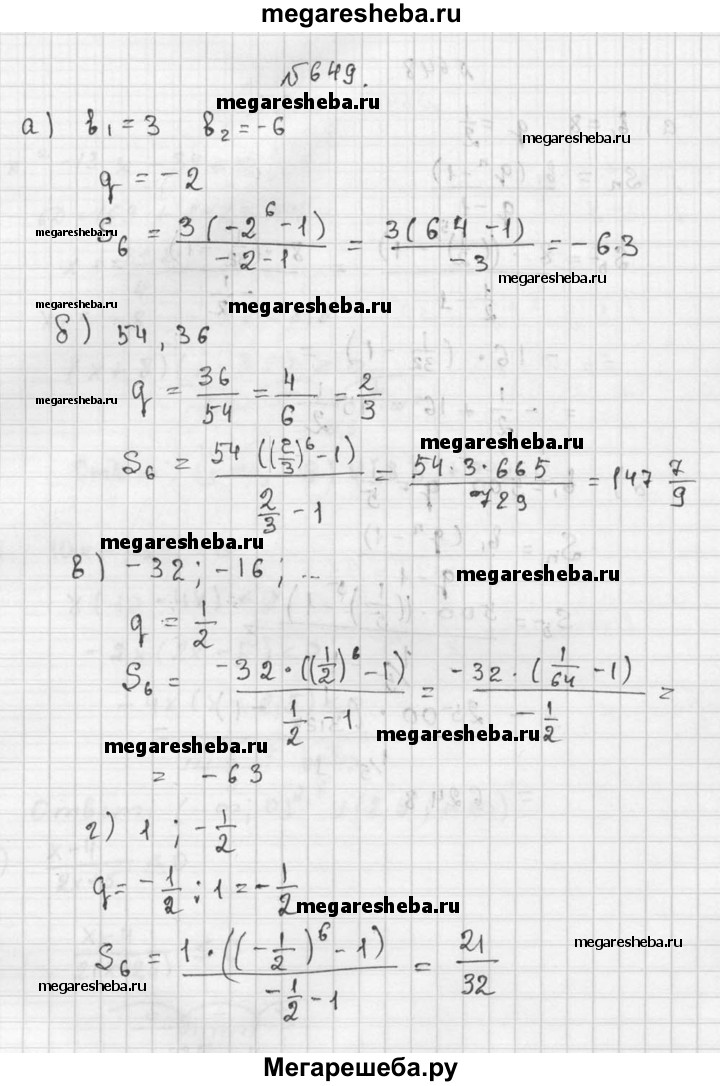 megaresheba.ru
№649.
megaresheba.ru
а) b₁ = 3 b₂ = -6
megaresheba.ru
q = -2
megaresheba.ru
S₆ = 3(-2⁶ - 1) / (-2 - 1) = 3(64 - 1) / -3 = -6.3
megaresheba.ru
megaresheba.ru
megaresheba.ru
б) 54, 36
megaresheba.ru
q = 36/54 = 4/6 = 2/3
megaresheba.ru
S₆ = 54((2/3)⁶ - 1) / (2/3 - 1) = 54·3·665 / 729 = 147 7/9
megaresheba.ru
в) -32; -16; ...
megaresheba.ru
q = 1/2
S₆ = -32·((1/2)⁶ - 1) / (1/2 - 1) = -32·(1/64 - 1) / (-1/2) =
megaresheba.ru
megaresheba.ru
= -63
г) 1; -1/2
q = -1/2 : 1 = -1/2
megaresheba.ru
S₆ = 1·((-1/2)⁶ - 1) / (-1/2 - 1) = 21/32
megaresheba.ru
megaresheba.ru
Мегарешеба.ру